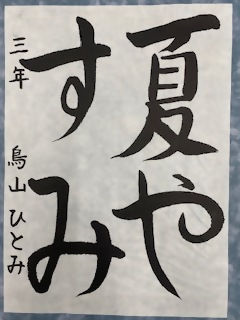 夏や
すみ
三年 鳥山ひとみ